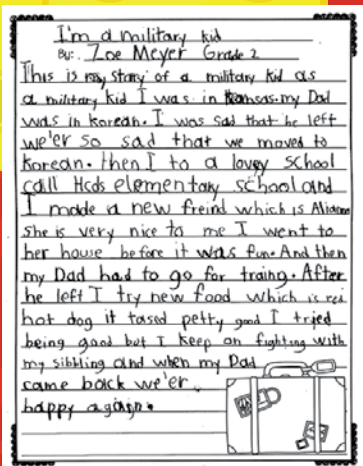 I'm a military kid
By: Zoe Meyer Grade 2
This is my story of a military kid as
a military kid I was in Kansas. my Dad
was in korean. I was sad that he left
we'er so sad that we moved to
korean. then I to a lovey school
call Hcds elementary school and
I made a new freind which is
she is very nice to me I went to
her house before it was fun. And then
my Dad had to go for traing. After
he left I try new food which is red
hot dog it tased petty good I tried
being good but I keep on fighting with
my sibbling and when my Dad
came back we'er
happy again.